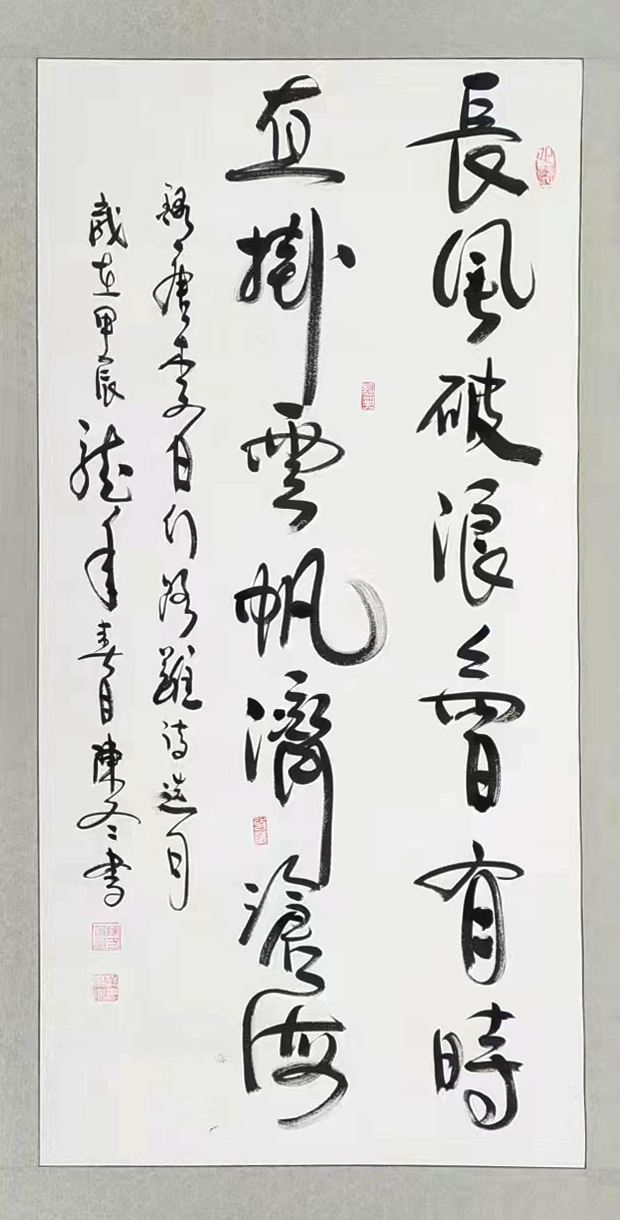 長風破浪會有時
直掛雲帆濟滄海
錄唐李白行路難詩選句
歲在甲辰龍年春月陳冬書